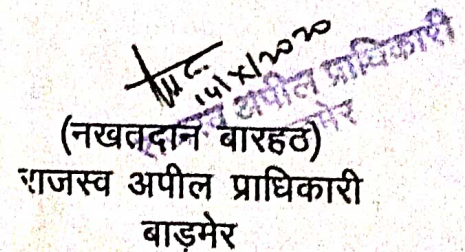 14/X/2020
राजस्व अपील प्राधिकारी
बाड़मेर
(नखतदान बारहठ)
राजस्व अपील प्राधिकारी
बाड़मेर